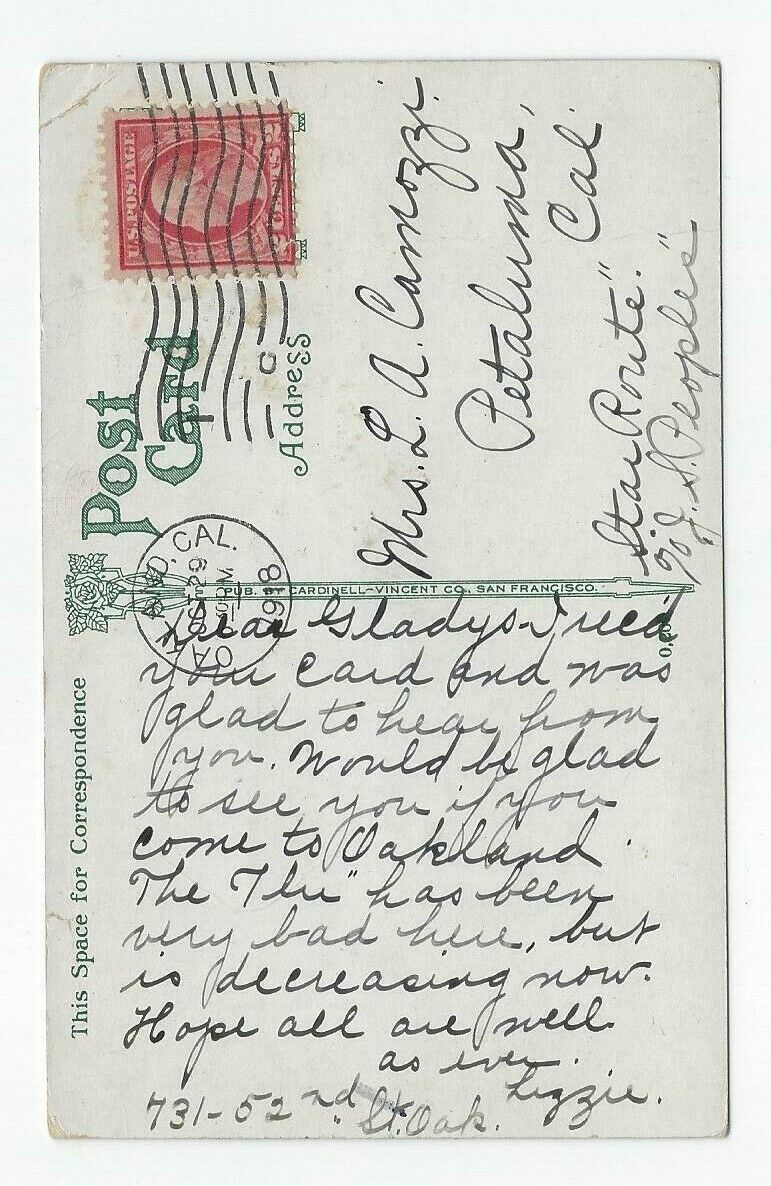 U.S. POSTAGE
2 CENTS 2
Post
Card
Address
Mrs. L. A. Camozzi.
Petaluma,
Cal.
"Star Route."
℅ J. S. Peoples"
OAKLAND, CAL.
OCT 29
1918
PUB. BY CARDINELL-VINCENT CO., SAN FRANCISCO.
This Space for Correspondence
Dear Gladys - I rec'd
your card and was
glad to hear from
you. Would be glad
to see you if you
come to Oakland.
The "Flu" has been
very bad here, but
is decreasing now.
Hope all are well.
as ever.
Lizzie.
731-52nd St. Oak.